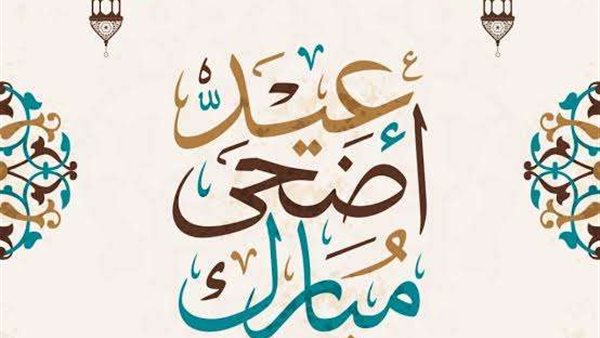 عيد
أضحى
مُبارك